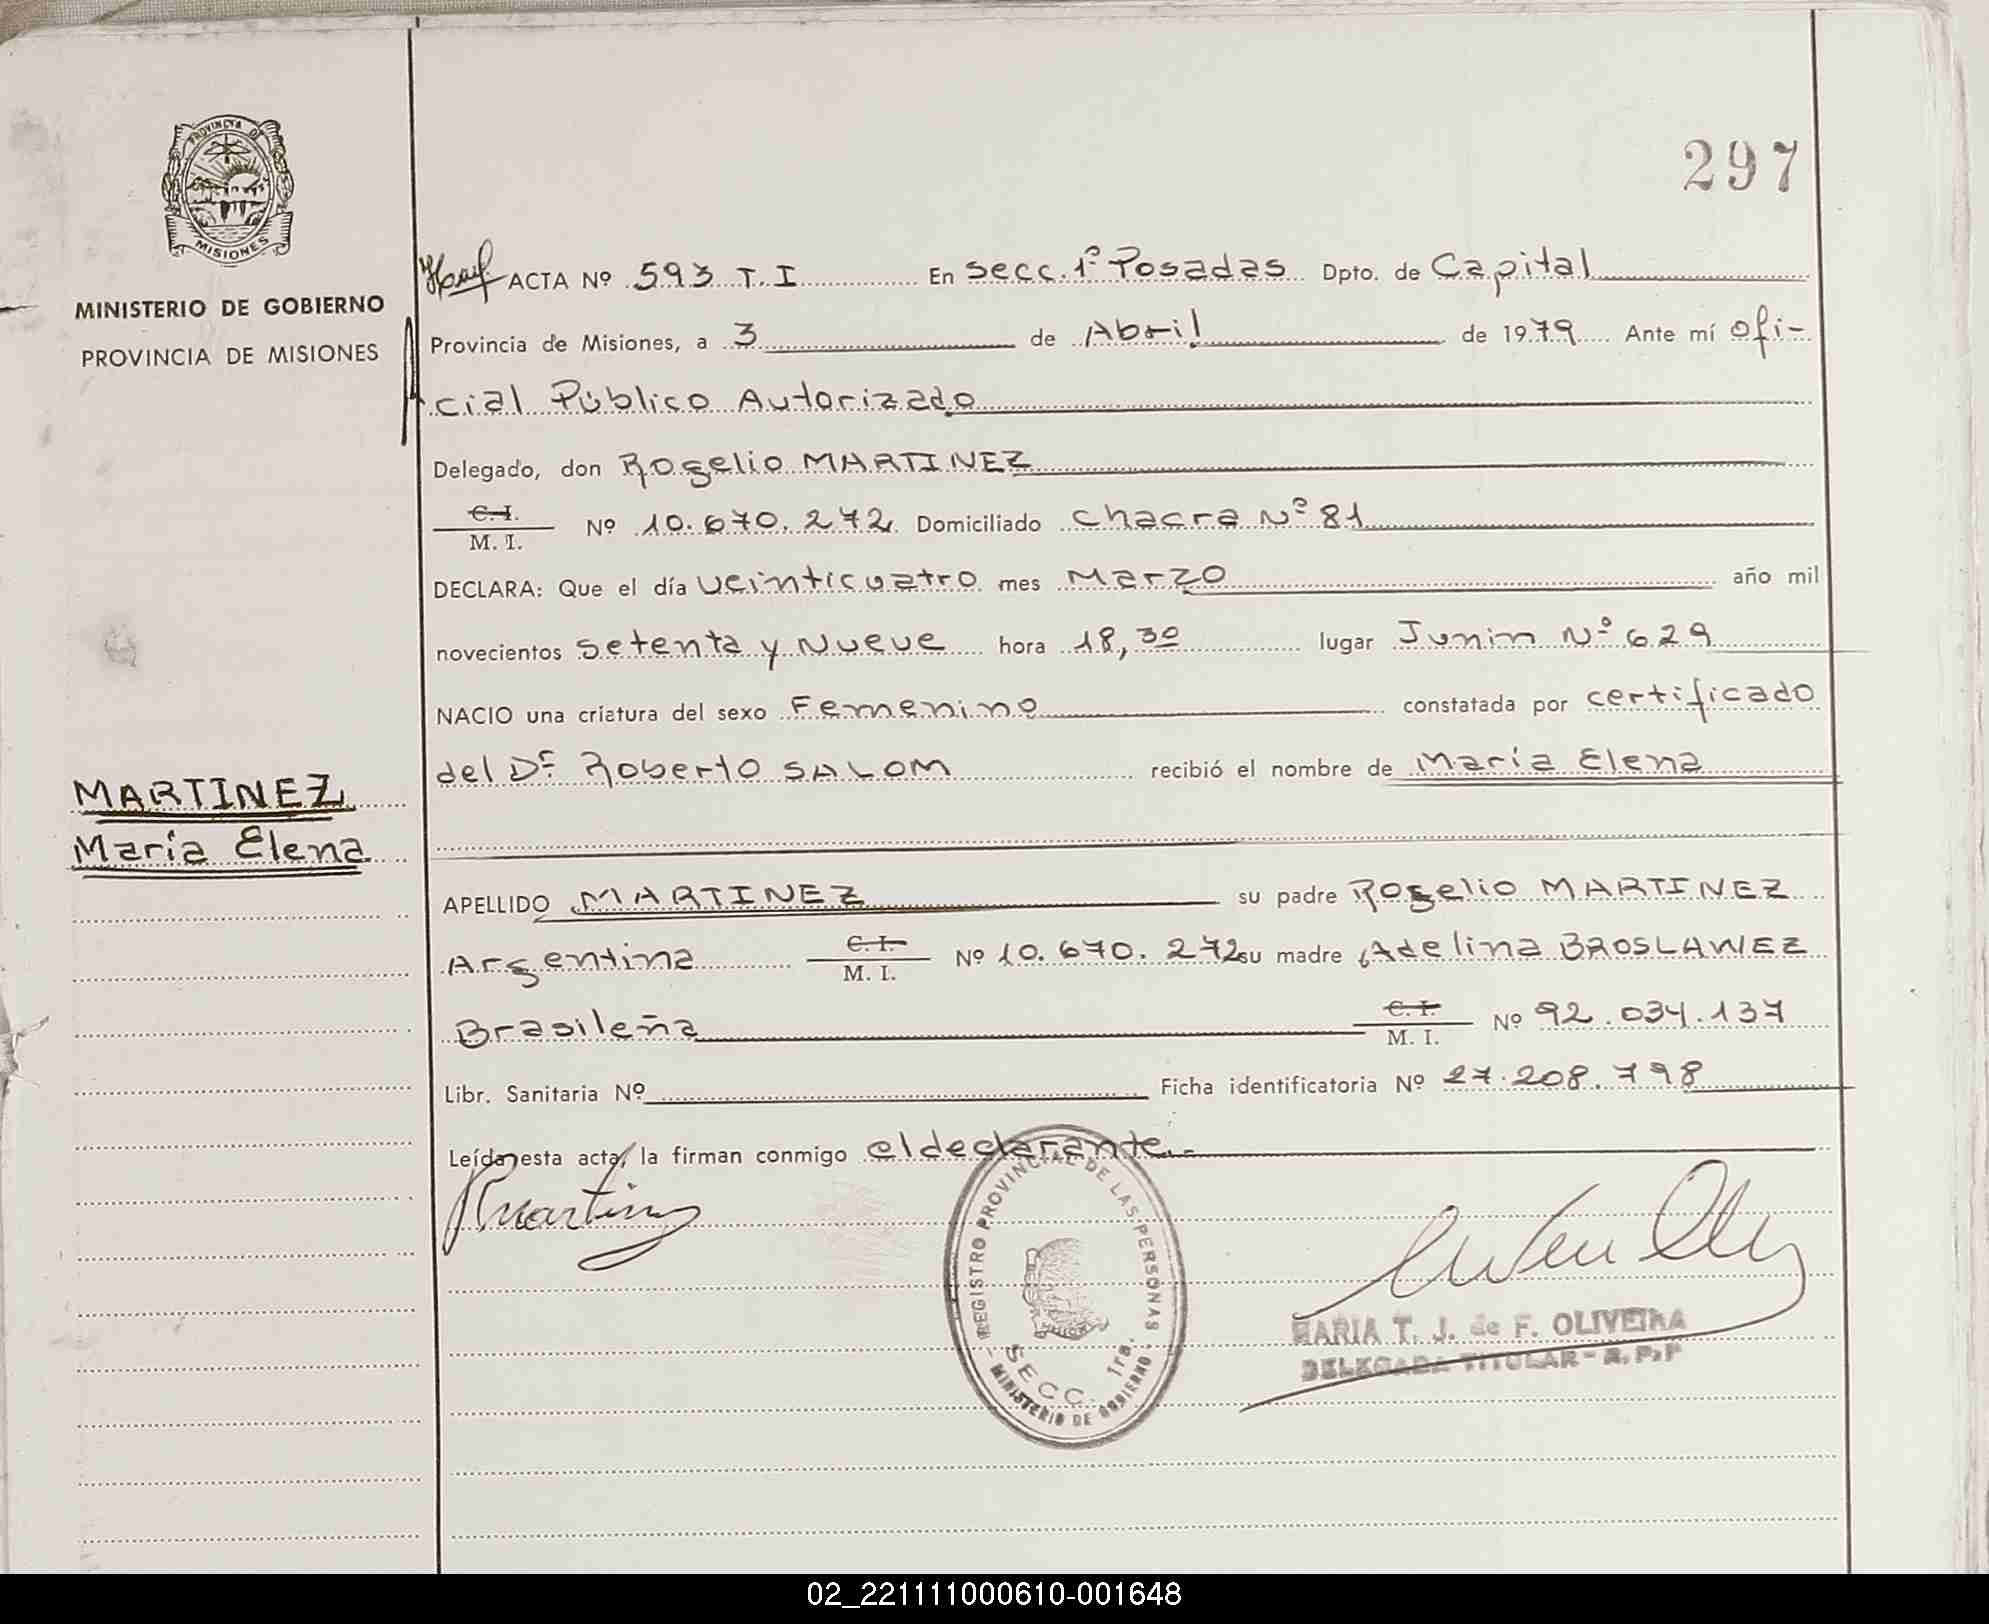 PROVINCIA DE
MISIONES
MINISTERIO DE GOBIERNO
PROVINCIA DE MISIONES
297
ACTA Nº 593 T. I En secc. 1º Posadas Dpto. de Capital
Provincia de Misiones, a 3 de Abril de 1979 Ante mí ofi-
cial Público Autorizado
Delegado, don Rogelio MARTINEZ
C. I.
M. I. Nº 10.670.272 Domiciliado chacra Nº 81
DECLARA: Que el día veinticuatro mes Marzo año mil
novecientos setenta y Nueve hora 18,30 lugar Junin Nº 629
NACIO una criatura del sexo Femenino constatada por certificado
del Dr Roberto SALOM recibió el nombre de María Elena
MARTINEZ
María Elena
APELLIDO MARTINEZ su padre Rogelio MARTINEZ
Argentina C. I. M. I. Nº 10.670.272 su madre Adelina BROSLAWEZ
Brasileña C. I. M. I. Nº 92.034.137
Libr. Sanitaria Nº Ficha identificatoria Nº 27.208.798
Leída esta acta, la firman conmigo el declarante.-
REGISTRO PROVINCIAL DE LAS PERSONAS
SECC. 1ra.
- MINISTERIO DE GOBIERNO -
MARIA T. J. de F. OLIVEIRA
DELEGADA TITULAR - R. P. P
02_221111000610-001648